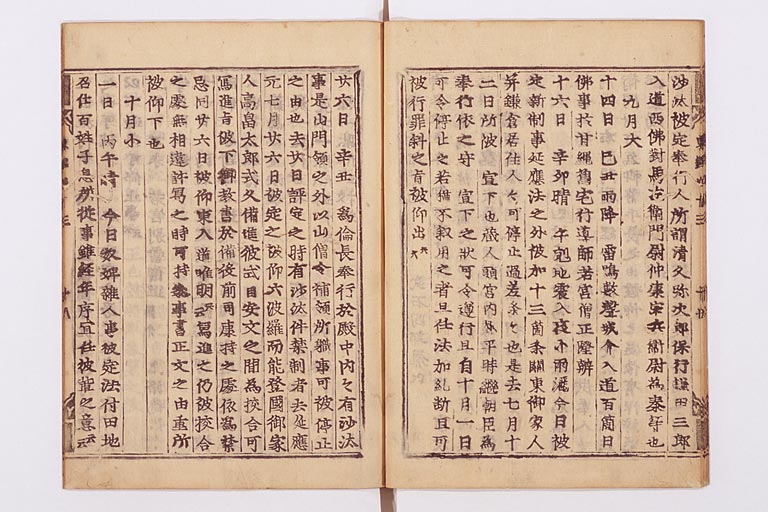 沙汰被定奉行人所謂清久弥次郎保行
入道西佛對馬左衛門尉仲康
九月大
十四日 己丑雨降 雷鳴数聲 入道百箇日
佛事於甘縄舊宅行導師若宮僧正
十六日 辛卯晴 午剋地震入夜小雨灑今日被
定新制事延應法之外被加十三箇条關東御家人
并鎌倉居住人々可停止過差条々也是去七月十
二日所被 宣下也蔵人頭宮内卿平時継朝臣為
奉行依之守 宣下之状可令遵行且自十月一日
可令停止之若猶不叙用之者且任法加糺断且可
被行罪科之旨被仰出
廿六日 辛丑 為倫長奉行於殿中内々有沙汰
事是山門領之外以山僧令補領所職事可被停止
之由也去廿日評定之時有沙汰件禁制者去延應
元七月廿六日被定之被仰六波羅而能登國御家
人高畠太郎式久備進彼式目案文之間為校合可
寫進旨被下御教書於備後前司康持之處依為禁
忌同廿六日被仰東入道唯明云々寫進之仍被校合
之處無相違計寫之時可持参事書正文之由重所
被仰下也
十月小
一日 丙午晴 今日奴婢雜人事被定法付田地
召仕百姓子息所從事雖經年序宜任彼輩之意云々